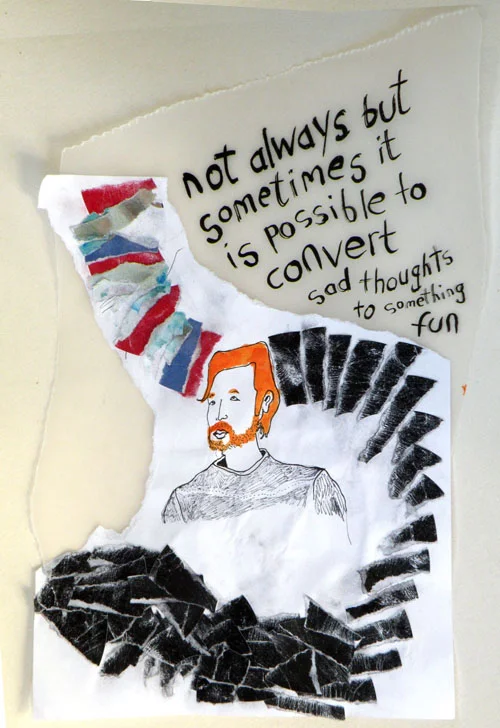 not always but
sometimes it
is possible to
convert
sad thoughts
to something
fun